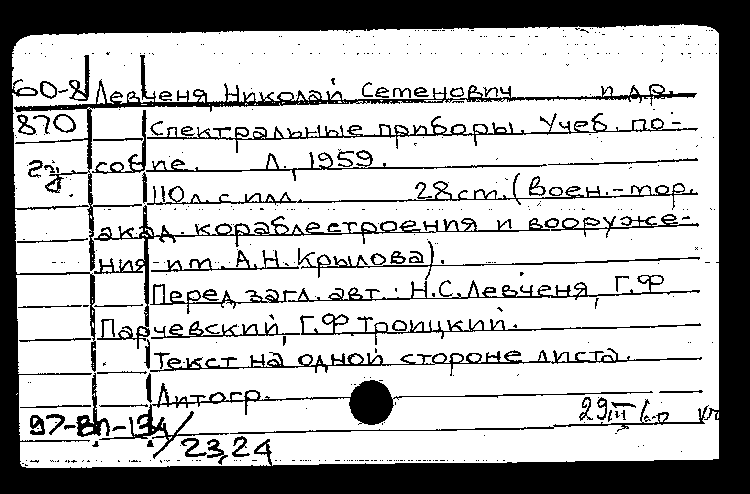 60-8 Левченя, Николай Семенович и др.
870 Спектральные приборы. Учеб. по-
собие. Л., 1959.
110 л. с илл. 28 см. (Воен.-мор.
акад. кораблестроения и вооруже-
ния им. А.Н. Крылова).
Перед загл. авт.: Н.С. Левченя, Г.Ф
Парчевский, Г.Ф. Троицкий.
Текст на одной стороне листа.
Литогр.
29 III 60
97-ВП-194/23,24